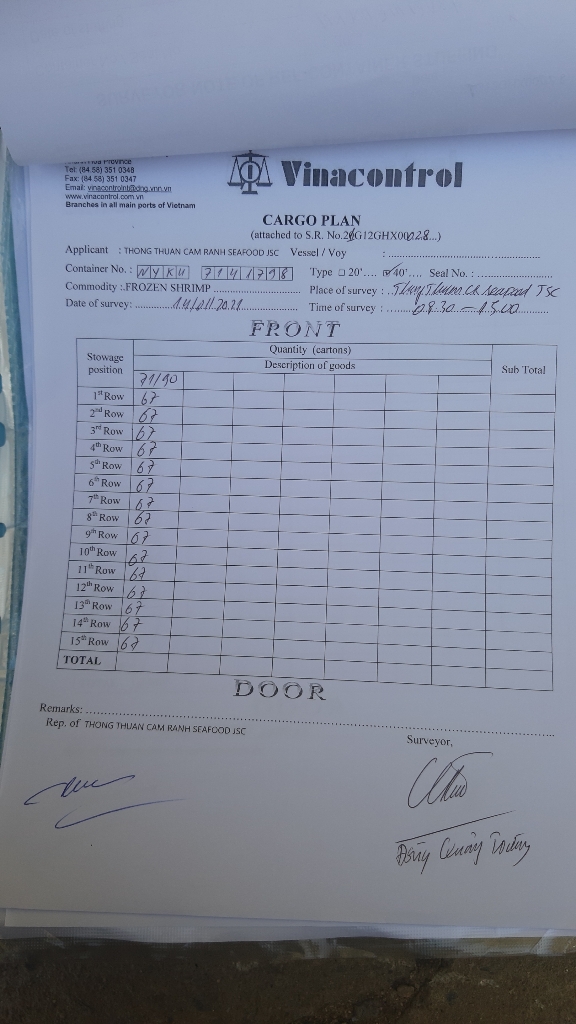 Tel: (84.58) 351 0348
Fax: (84.58) 351 0347
Email: vinacontrolnt@dng.vnn.vn
www.vinacontrol.com.vn
Branches in all main ports of Vietnam
Vinacontrol
CARGO PLAN
(attached to S.R. No.21G12GHX00028...)
Applicant : THONG THUAN CAM RANH SEAFOOD JSC Vessel / Voy :
Container No. : NYKU 7141798 Type 20'.... 40'.... Seal No. :
Commodity : FROZEN SHRIMP Place of survey : Seafood JSC
Date of survey: Time of survey : 08.30 - 15.00
FRONT
Stowage position Quantity (cartons) Sub Total
Description of goods
71/90
1st Row 67
2nd Row 67
3rd Row 67
4th Row 67
5th Row 67
6th Row 67
7th Row 67
8th Row 67
9th Row 67
10th Row 67
11th Row 67
12th Row 67
13th Row 67
14th Row 67
15th Row 67
TOTAL
DOOR
Remarks:
Rep. of THONG THUAN CAM RANH SEAFOOD JSC
Surveyor,